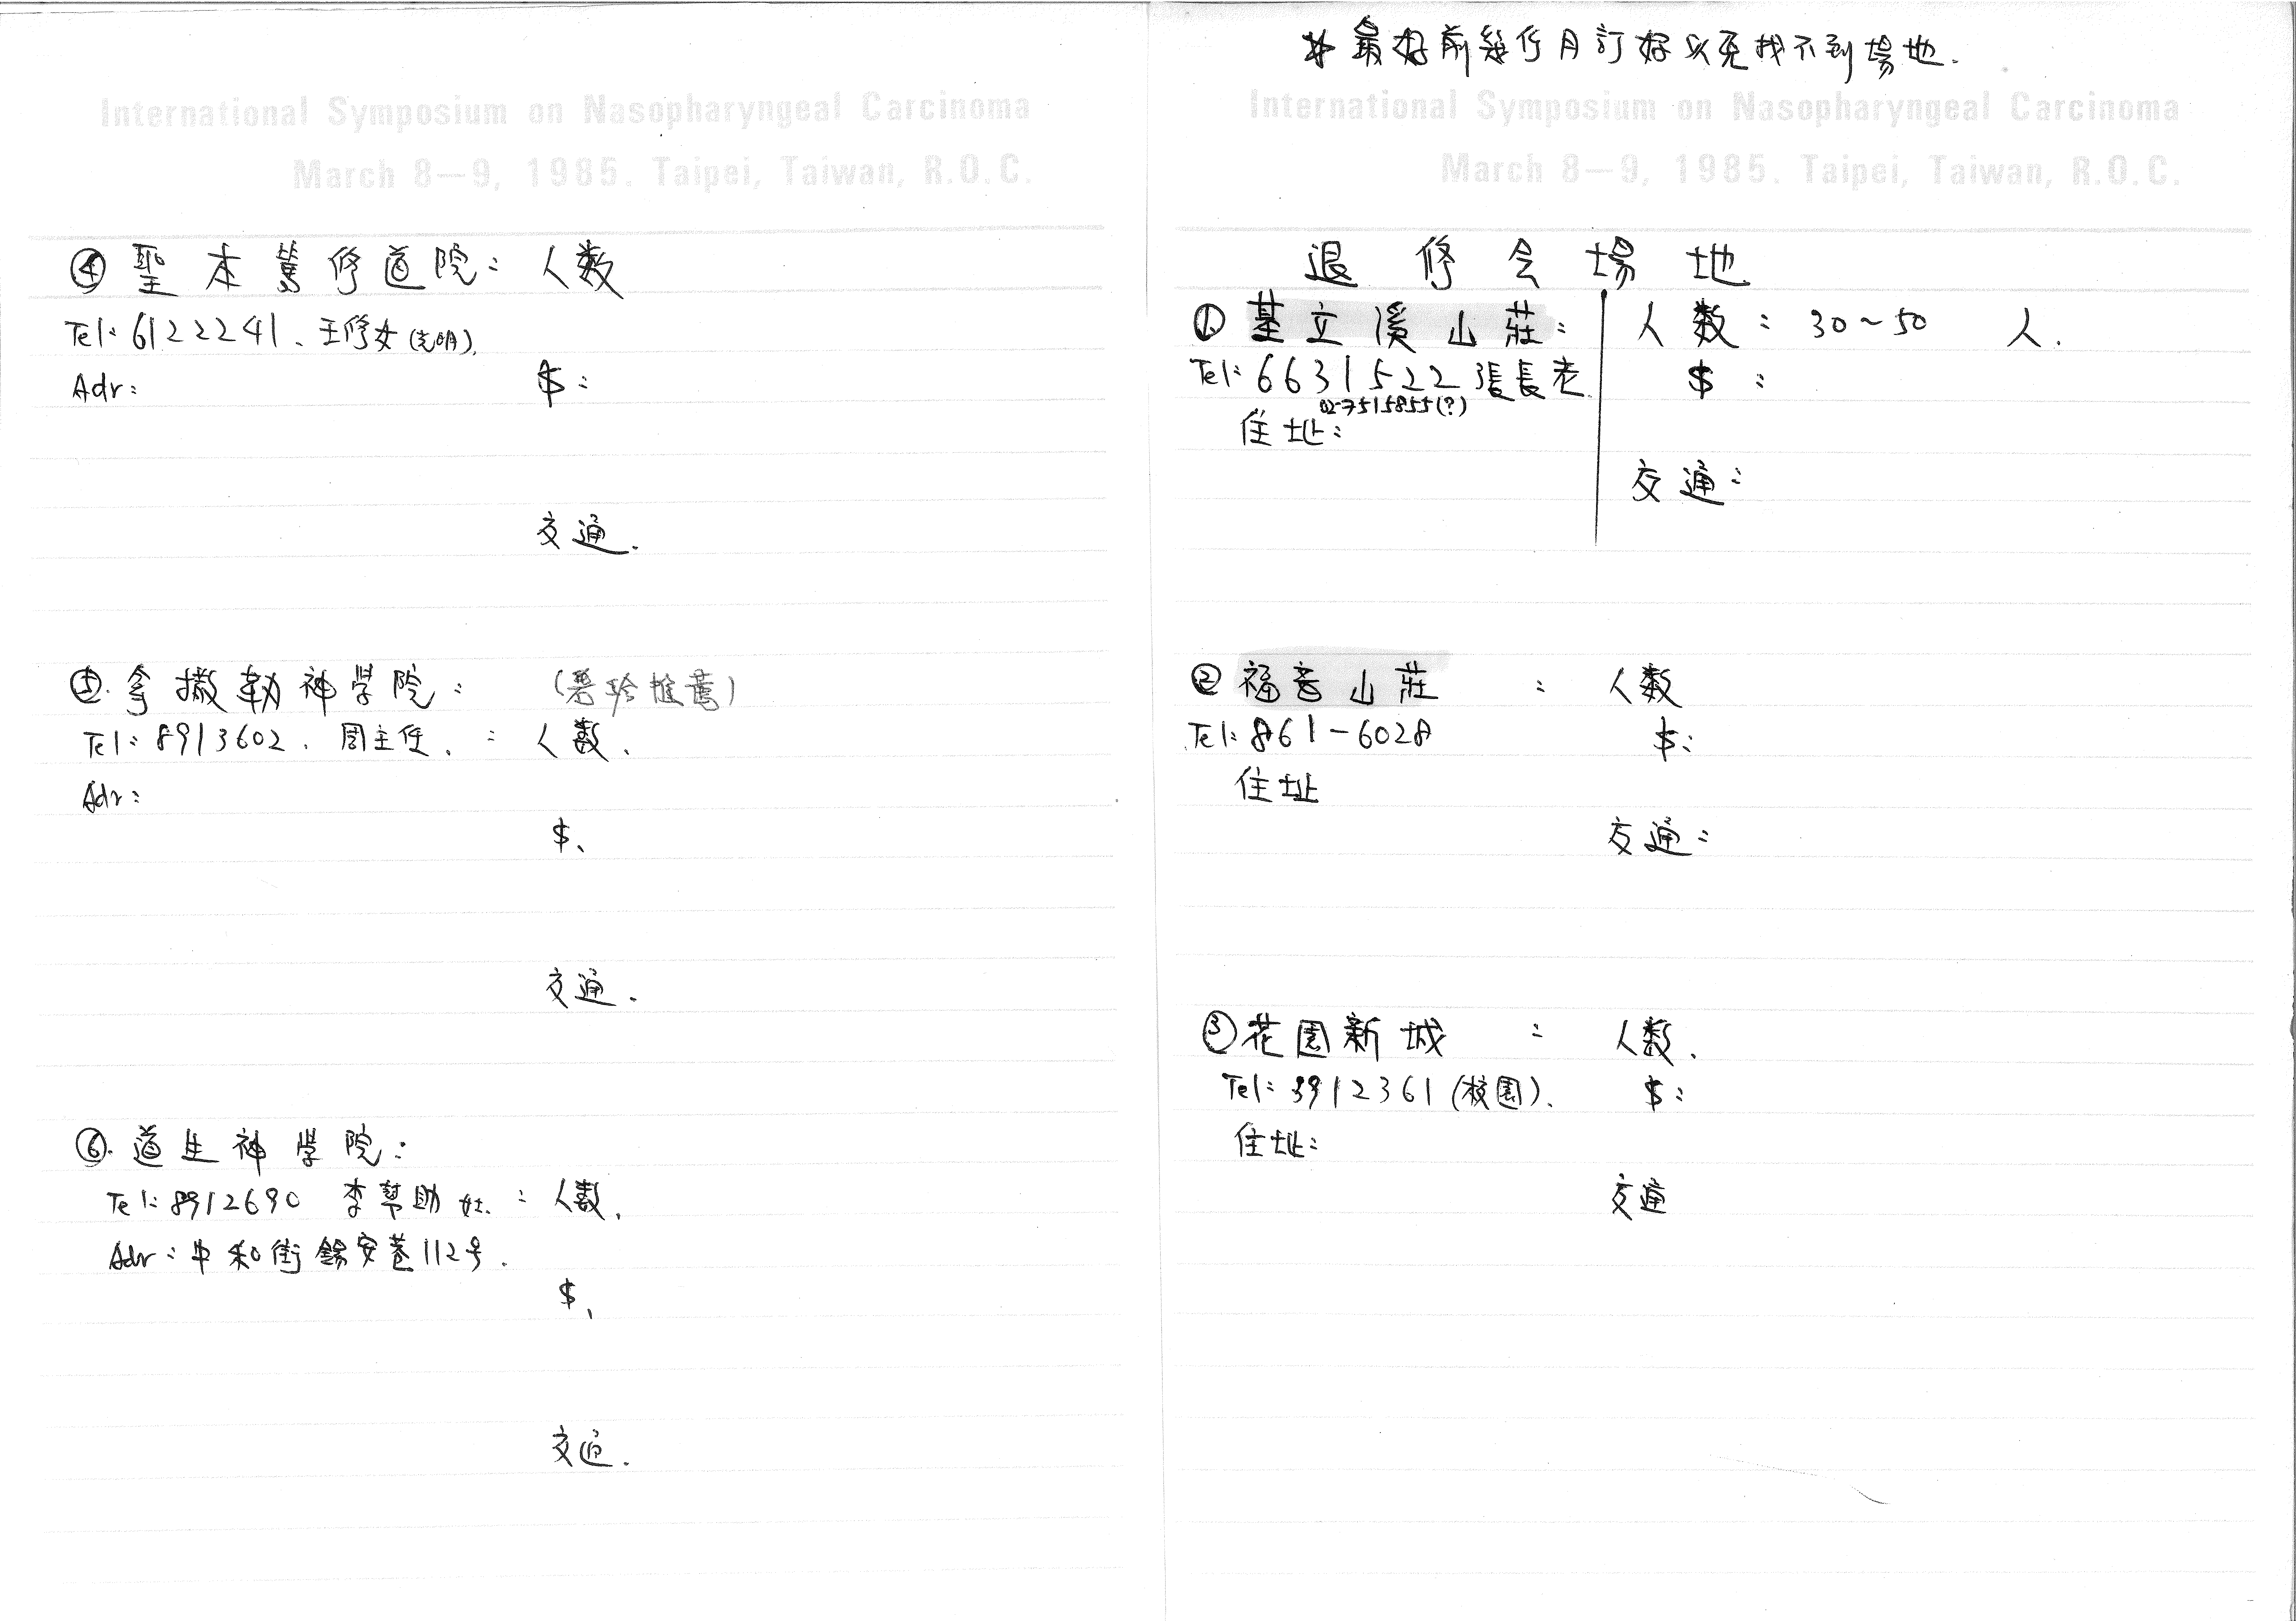 * 最好前幾个月訂好以免找不到場地.
International Symposium on Nasopharyngeal Carcinoma
March 8—9, 1985. Taipei, Taiwan, R.O.C.
退修会場地
① 基立溪山莊: 人数: 30~50 人.
Tel: 6631522 張長老 $:
02-7515855(?)
住址:
交通:
② 福音山莊 : 人数
Tel: 861-6028 $:
住址
交通:
③ 花園新城 : 人数.
Tel: 3912361 (校園). $:
住址:
交通
International Symposium on Nasopharyngeal Carcinoma
March 8—9, 1985. Taipei, Taiwan, R.O.C.
④ 聖本篤修道院: 人数
Tel: 6122241、王修女
Adr: $:
交通.
⑤. 拿撒勒神學院: 推薦)
Tel: 8913602. 周主任. : 人数.
Adr:
$、
交通.
⑥. 道生神學院:
Tel: 8912690 李幫助 姊. : 人数.
Adr: 中和街錫安巷112号.
$、
交通.